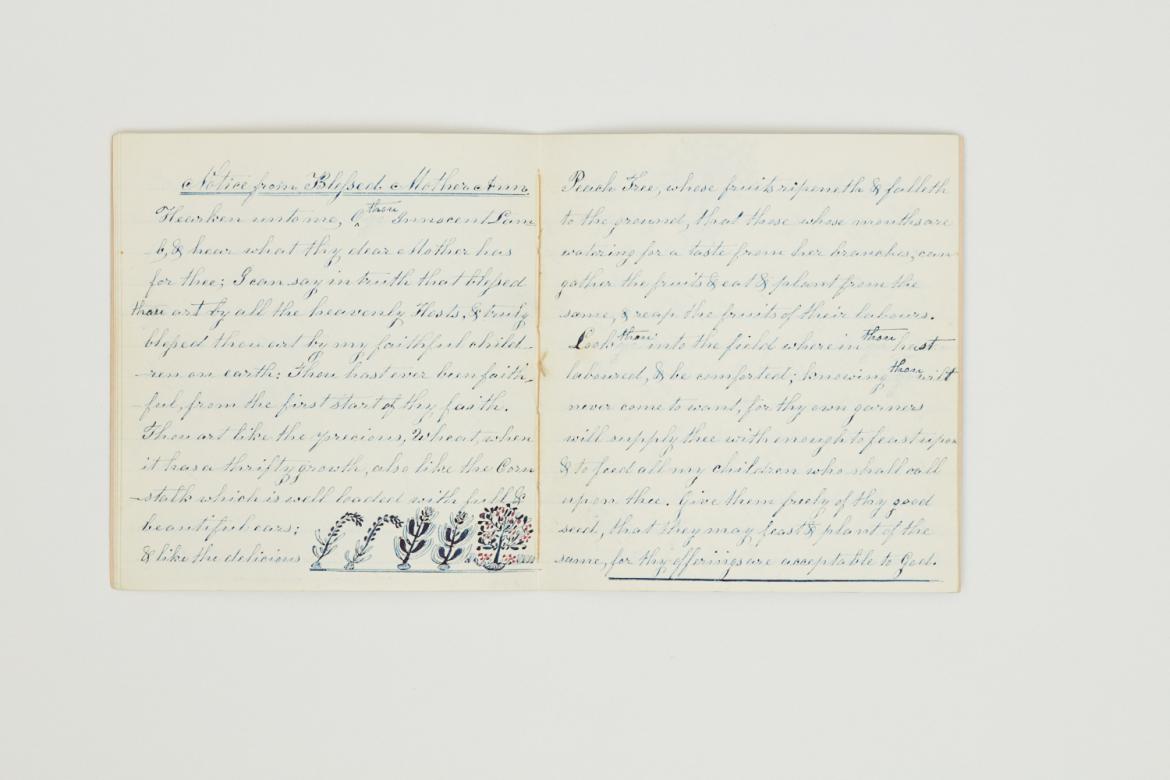 Notice from Blessed Mother Ann.
Hearken unto me, O thou Innocent Lam
b, & hear what thy dear Mother has
for thee; I can say in truth that blessed
thou art by all the heavenly Hosts, & truly
blessed thou art by my faithful child-
ren on earth: Thou hast ever been faith-
ful, from the first start of thy faith.
Thou art like the precious, Wheat, when
it has a thrifty growth, also like the Corn
stalk which is well loaded with full &
beautiful ears;
& like the delicious
Peach Tree, whose fruits ripeneth & falleth
to the ground, that those whose mouths are
watering for a taste from her branches, can
gather the fruits & eat & plant from the
same, & reap the fruits of their labours.
Look thou into the field wherein thou hast
laboured, & be comforted; knowing thou wilt
never come to want, for thy own garners
will supply thee with enough to feast upon
& to feed all my children who shall call
upon thee. Give them freely of thy good
seed, that they may feast & plant of the
same, for thy offerings are acceptable to God.